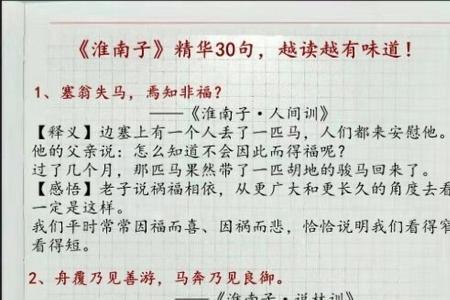 《淮南子》精华30句，越读越有味道！
1、塞翁失马，焉知非福？
——《淮南子·人间训》
【释义】边塞上有一个人丢了一匹马，人们都来安慰他。
他的父亲说：怎么知道不会因此而得福呢？
过了几个月，那匹马果然带了一匹胡地的骏马回来了。
【感悟】老子说祸福相依，从更广大和更长久的角度去看
一定是这样。
我们平时常常因福而喜、因祸而悲，恰恰说明我们看得窄
看得短。
2、舟覆乃见善游，马奔乃见良御。
——《淮南子·说林训》